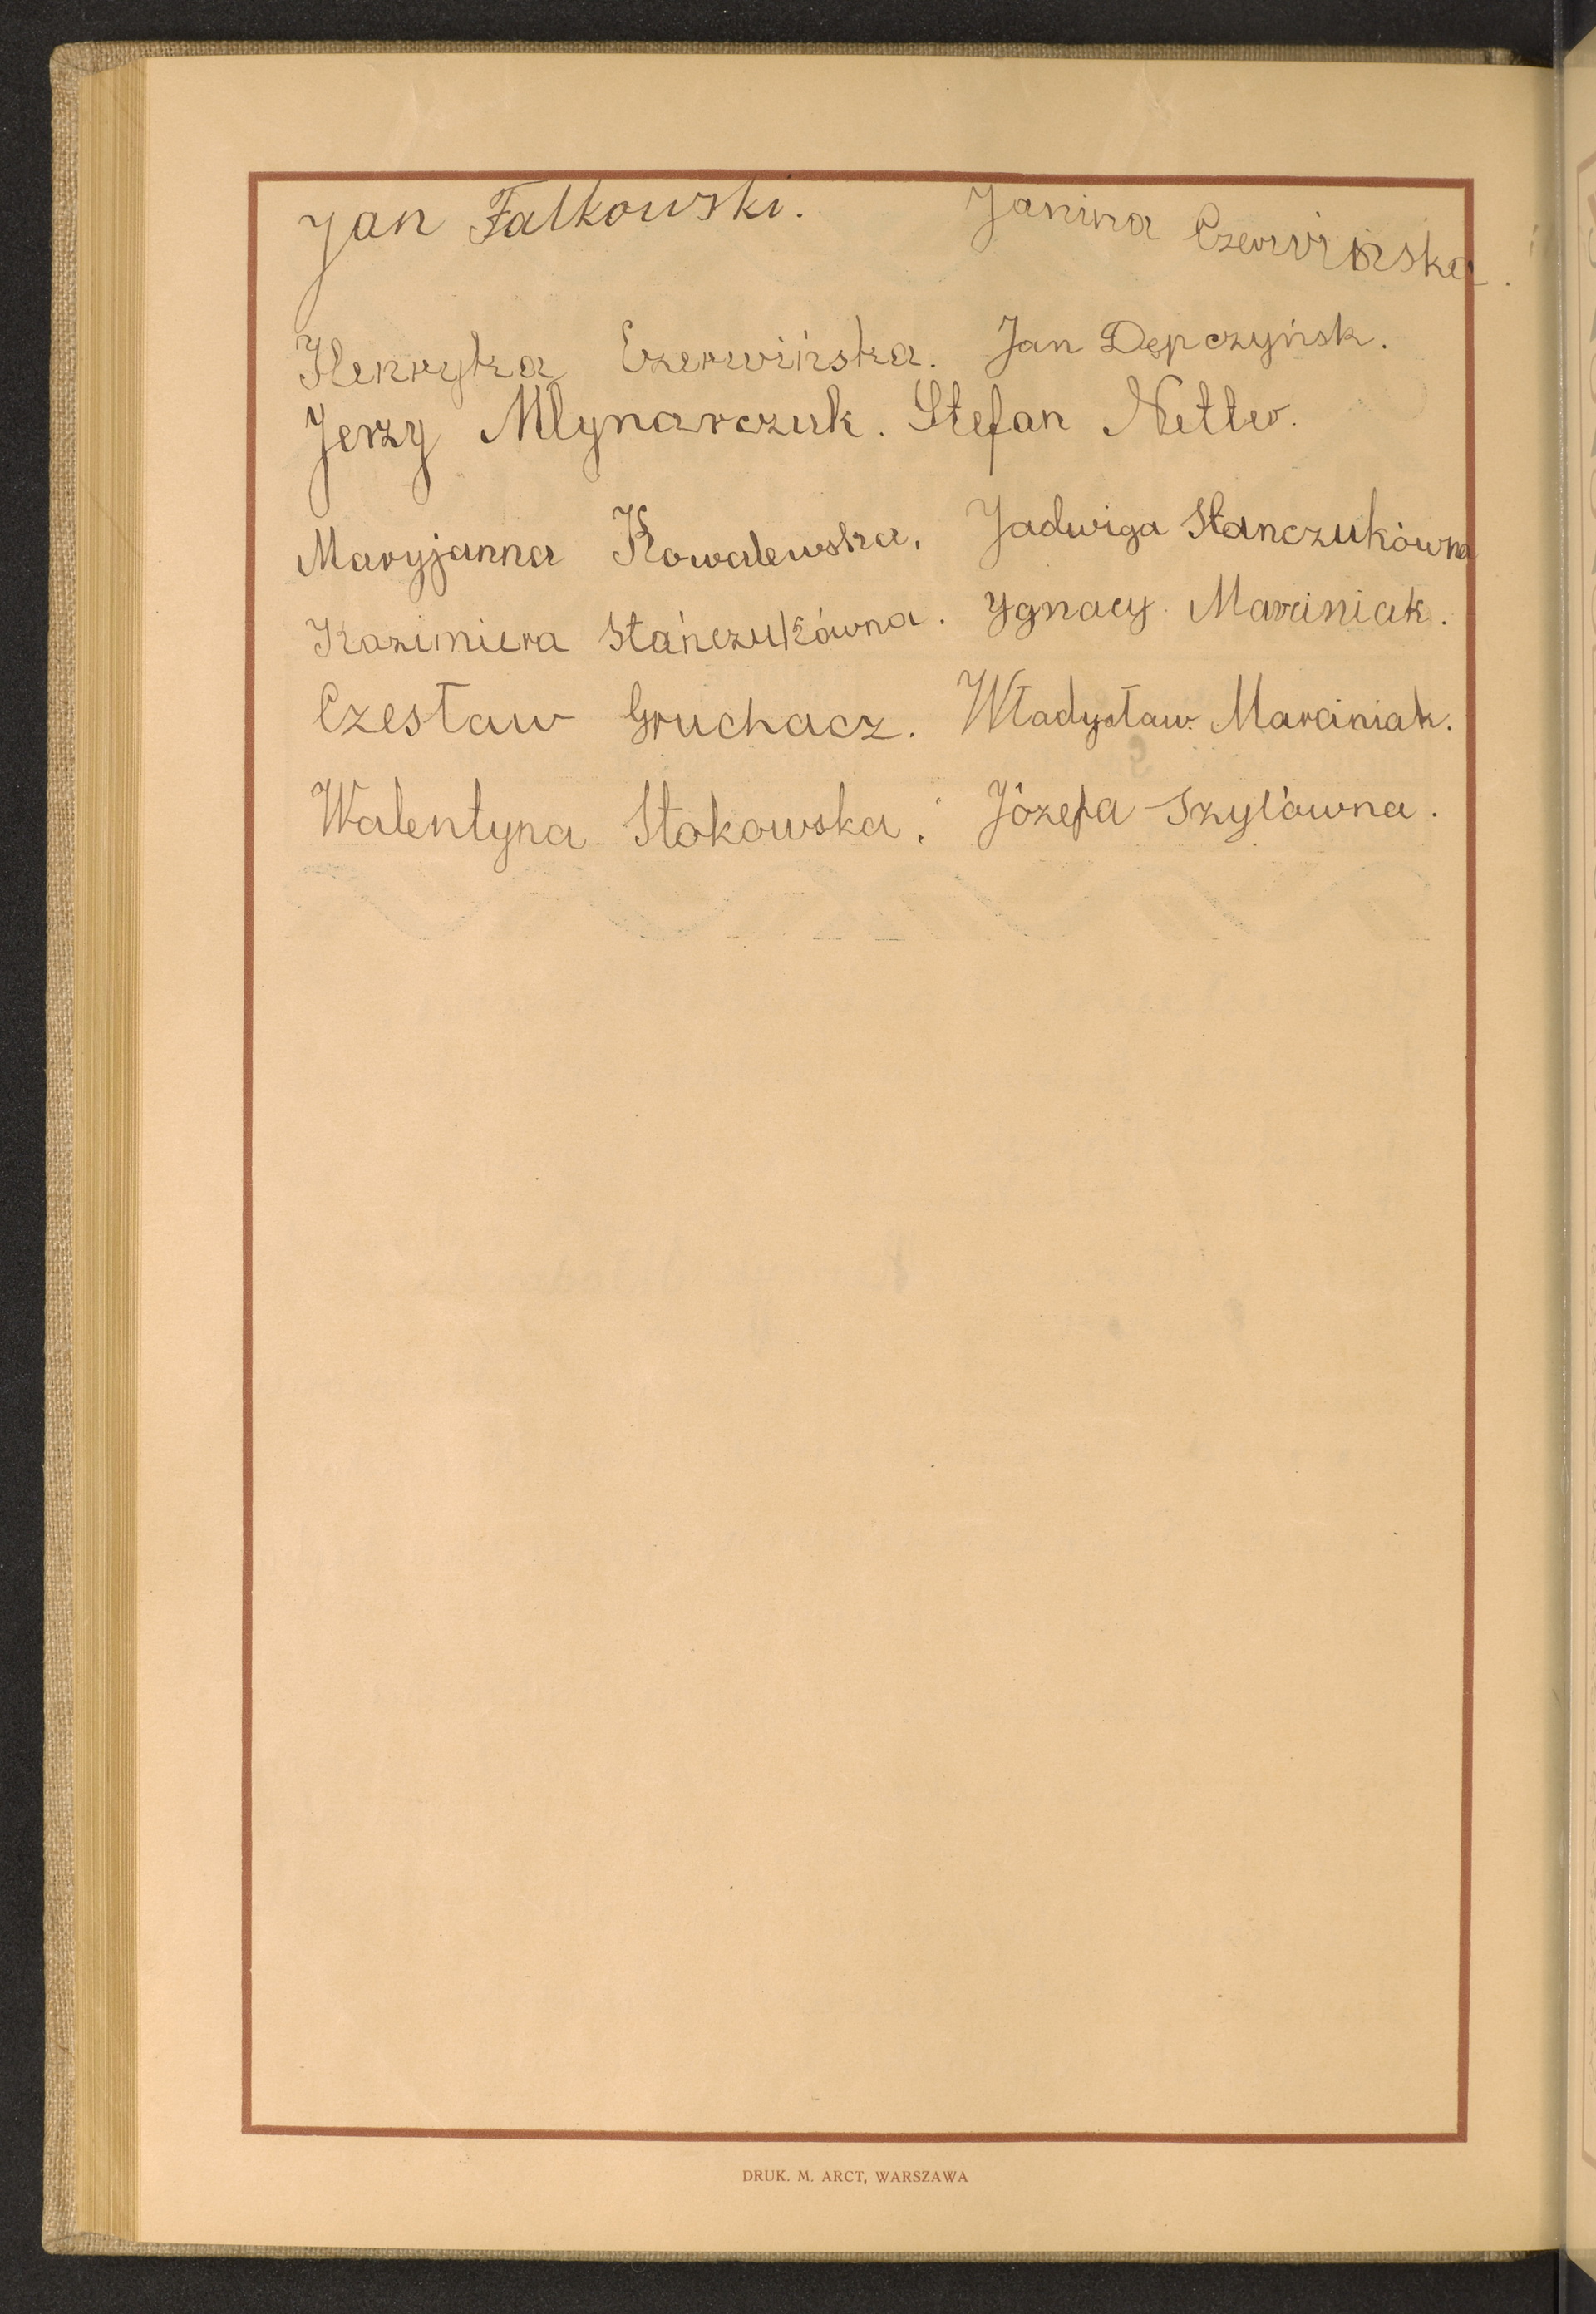 Jan Falkowski. Janina Czerwińska.
Henryka Czerwińska. Jan Dępczyńsk.
Jerzy Mlynarczuk. Stefan
Maryjanna Kowalewska, Jadwiga Stanczukówna
Kazimiera Stańczukówna. Ygnacy. Marciniak.
Czesław Gruchacz. Władysław. Marciniak.
Walentyna Stokowska. Józefa Szylówna.
DRUK. M. ARCT, WARSZAWA